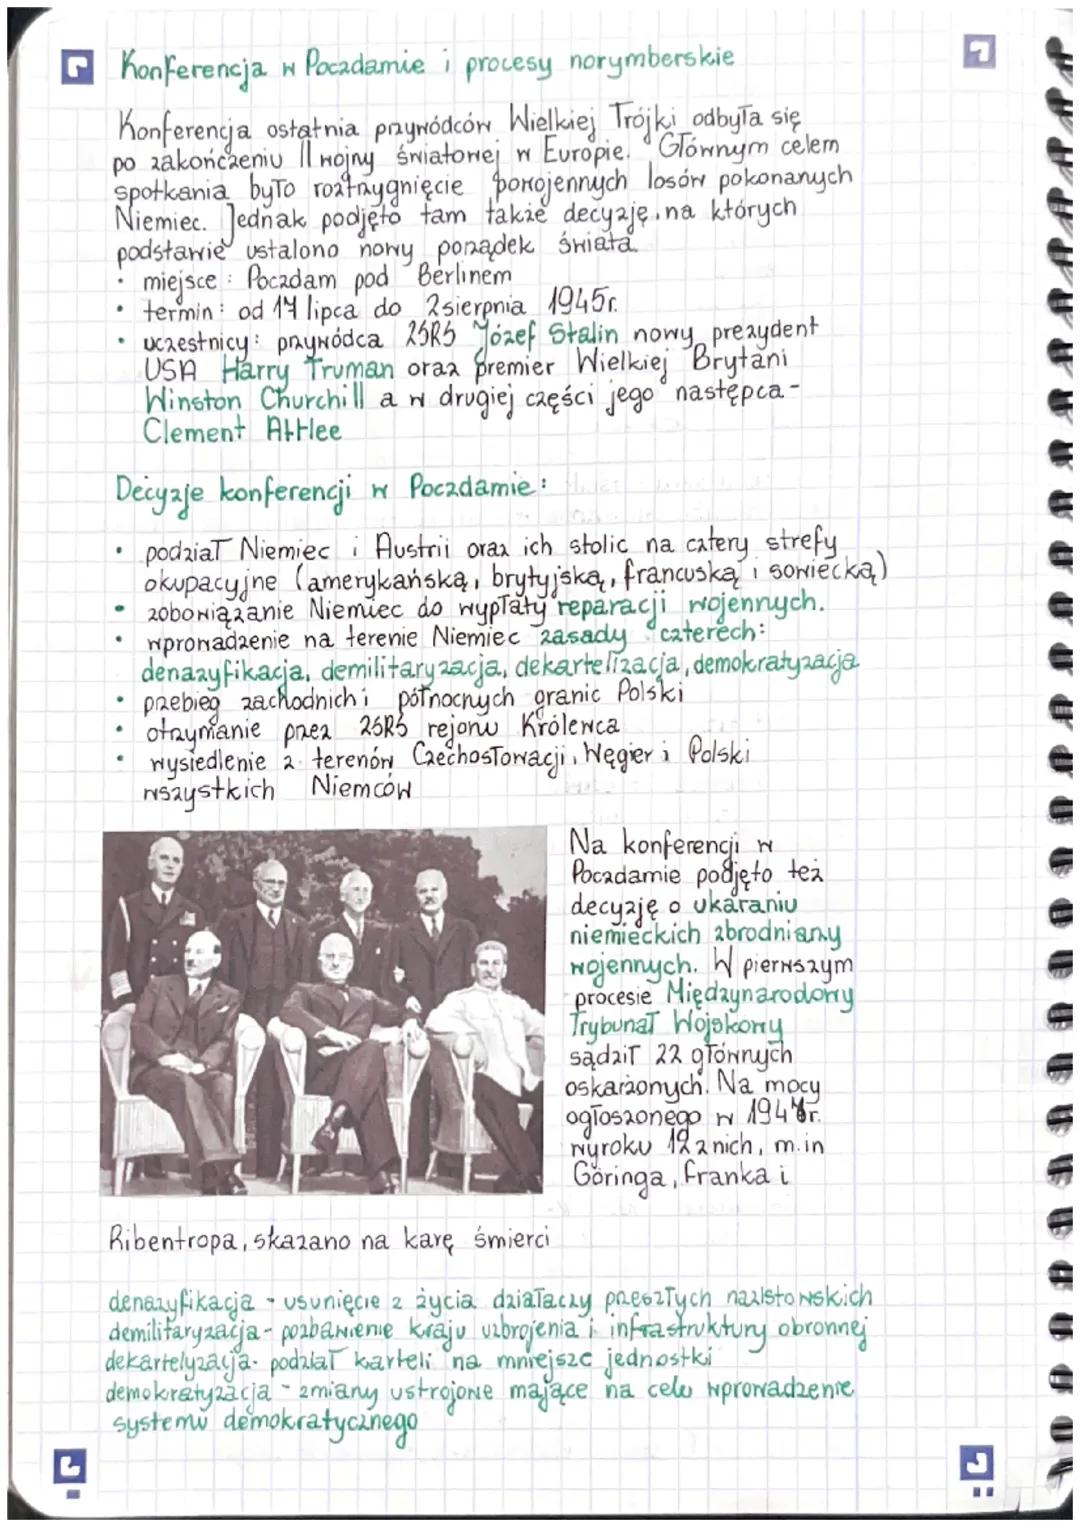 Konferencja w Poczdamie i procesy norymberskie
Konferencja ostatnia przywódców Wielkiej Trójki odbyła się
po zakończeniu II wojny światowej w Europie. Głównym celem
spotkania było roztrzygnięcie powojennych losów pokonanych
Niemiec. Jednak podjęto tam także decyzję na których
podstawie ustalono nowy porządek świata.
• miejsce: Poczdam pod Berlinem
• termin: od 17 lipca do 2 sierpnia 1945r.
• uczestnicy: przywódca ZSRS Józef Stalin nowy prezydent
USA Harry Truman oraz premier Wielkiej Brytani
Winston Churchill a w drugiej części jego następca -
Clement Attlee
Decyzje konferencji w Poczdamie:
• podział Niemiec i Austrii oraz ich stolic na cztery strefy
okupacyjne (amerykańską, brytyjską, francuską i sowiecką)
• zobowiązanie Niemiec do wypłaty reparacji wojennych.
• wprowadzenie na terenie Niemiec zasady czterech:
denazyfikacja, demilitaryzacja, dekartelizacja, demokratyzacja
• przebieg zachodnich i północnych granic Polski
• otrzymanie przez ZSRS rejonu Królewca
• wysiedlenie z terenów Czechosłowacji, Węgier i Polski
wszystkich Niemców
Na konferencji w
Poczdamie podjęto też
decyzję o ukaraniu
niemieckich zbrodniarzy
wojennych. W pierwszym
procesie Międzynarodowy
Trybunał Wojskowy
sądził 22 głównych
oskarżonych. Na mocy
ogłoszonego w r.
wyroku 12 z nich, m.in
Göringa, Franka i
Ribentropa, skazano na karę śmierci
denazyfikacja - usunięcie z życia działaczy przeszłych nazistowskich
demilitaryzacja - pozbawienie kraju uzbrojenia i infrastruktury obronnej
dekartelyzacja - podział karteli na mniejsze jednostki
demokratyzacja - zmiany ustrojowe mające na celu wprowadzenie
systemu demokratycznego